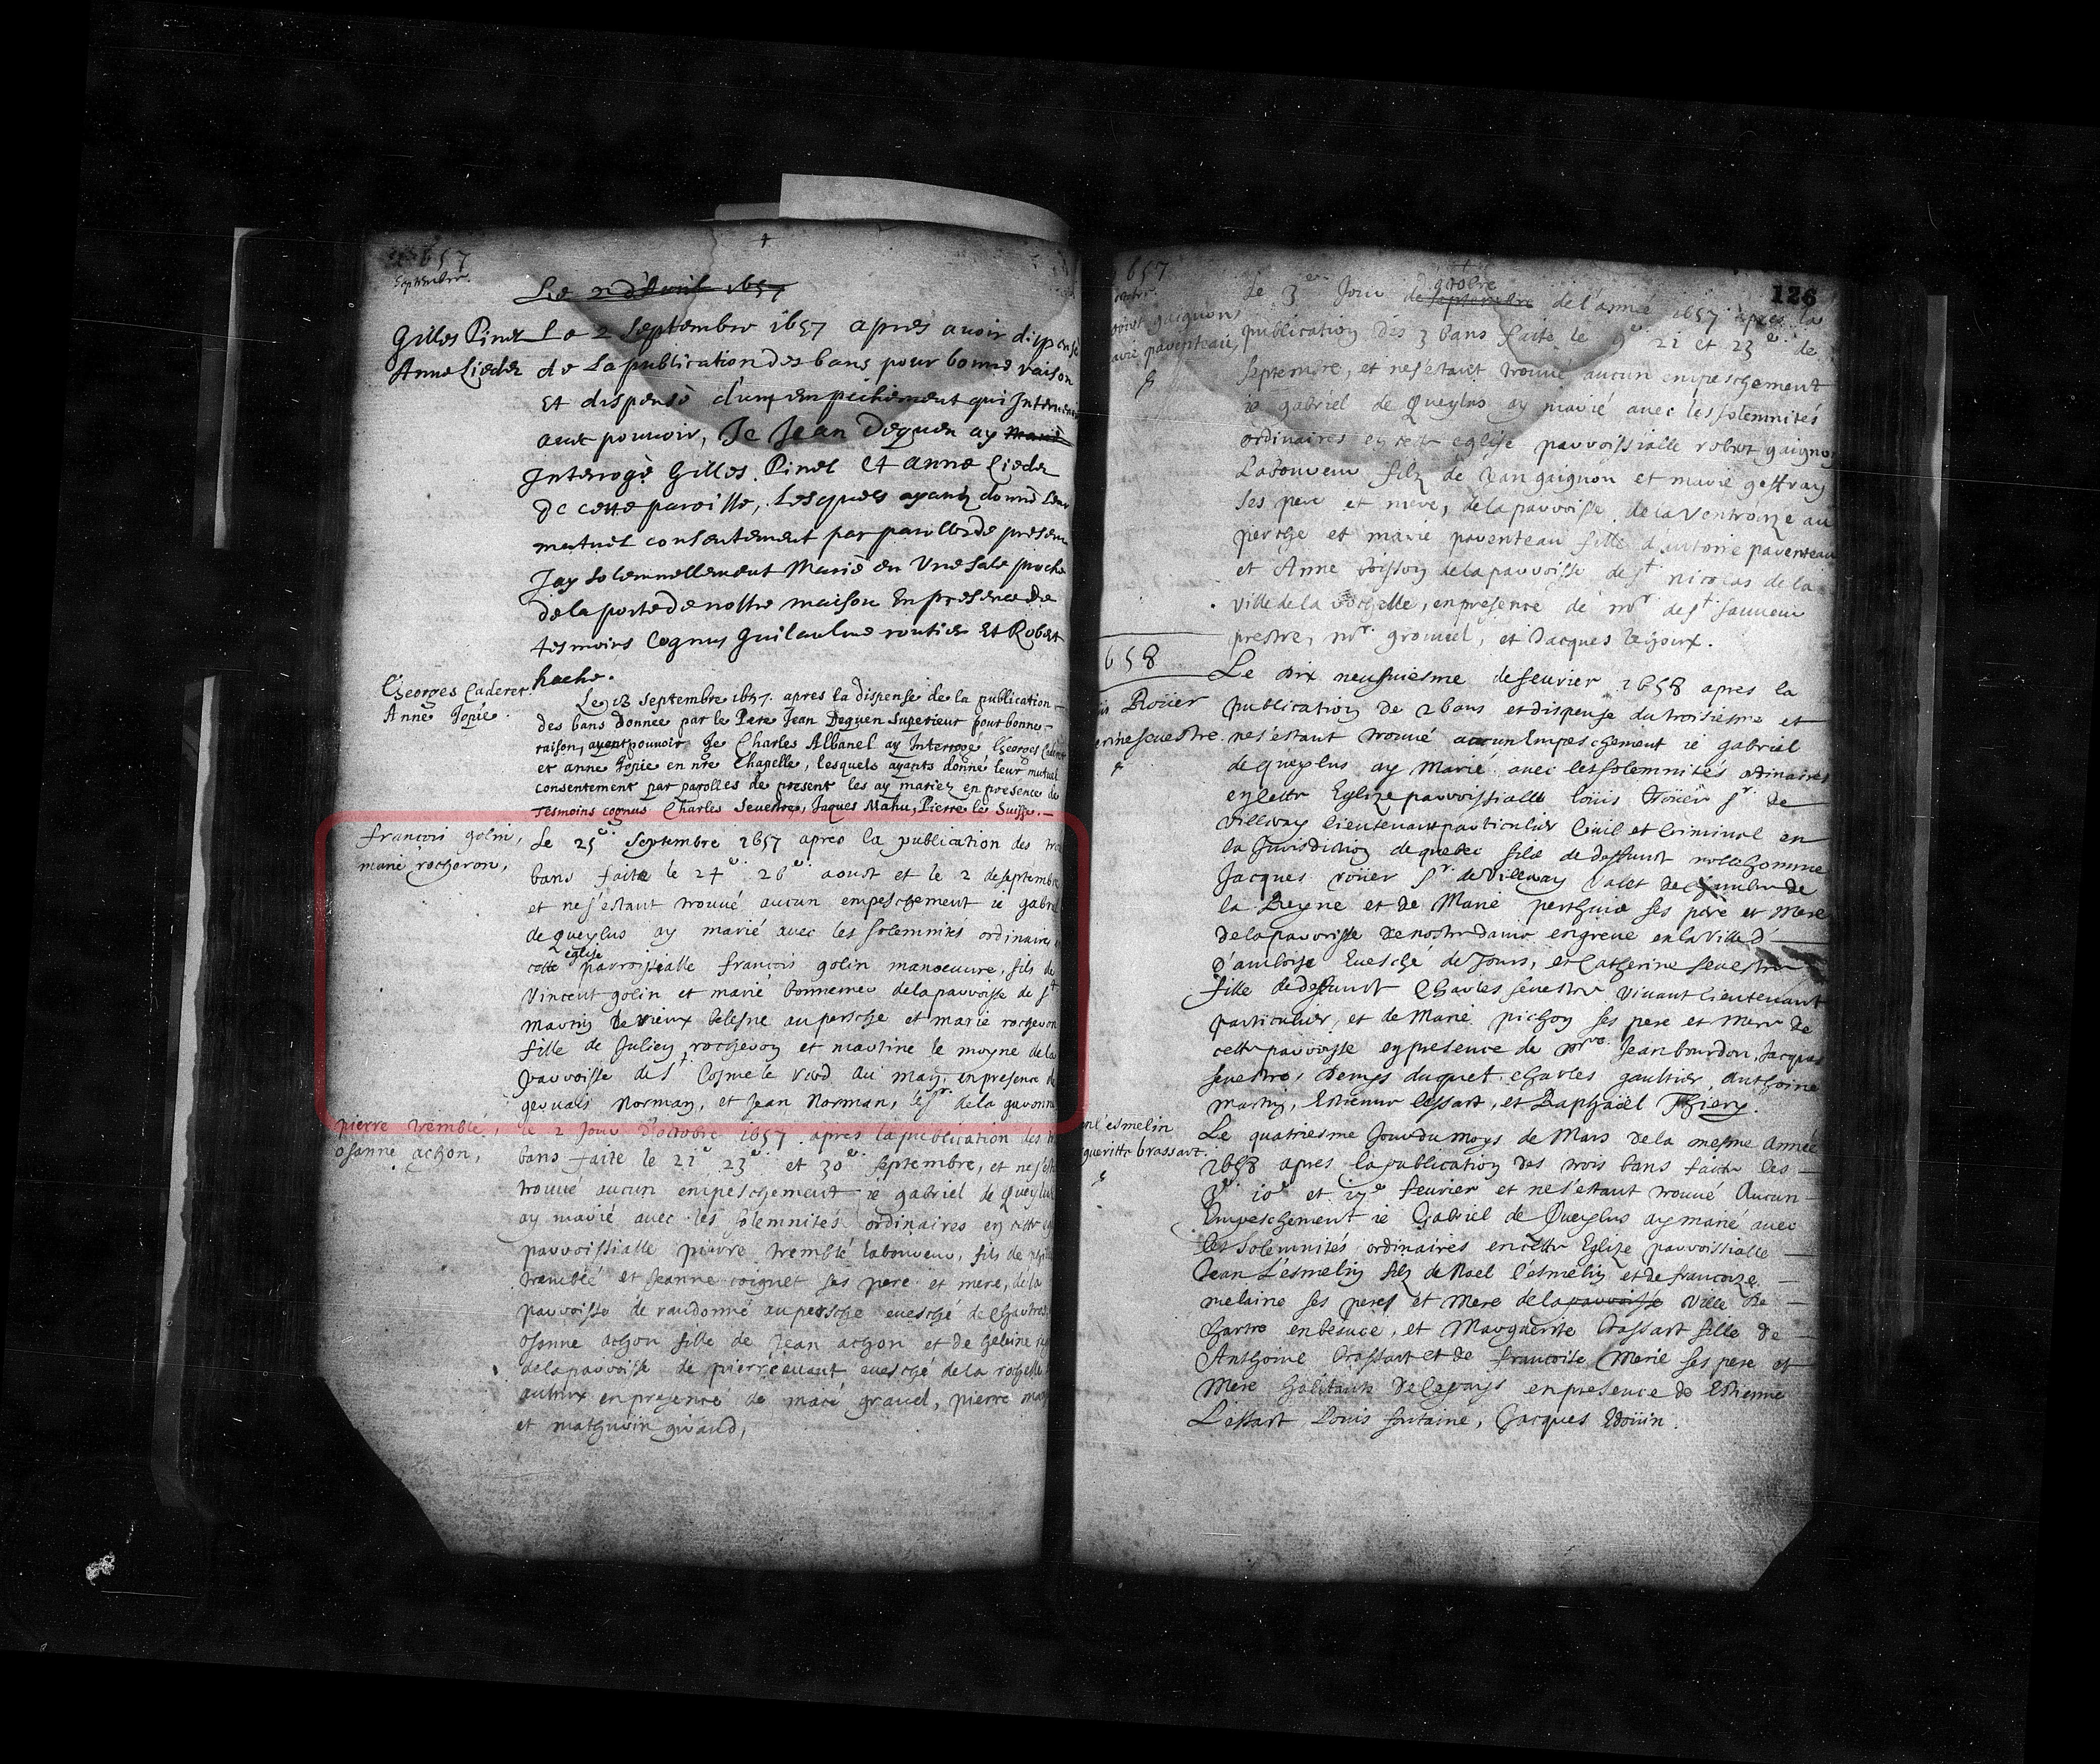 1657
Septembre.
Le 2 d'Avril 1657
Gilles Pinel
Anne Lieder
Le 2 Septembre 1657 apres avoir dispensé
de La publication des bans pour bonne raison
Et dispensé d'un empechement qui
avec pouvoir, Je Jean Dequen ay Marié
Interrogé Gilles Pinel Et Anne Lieder
De cette paroisse, Lesquels ayants donné leur
mutuel consentement par parolles de present
Jay solemnellement Marié en Une Sale proche
de la porte de nostre maison En presence de
tesmoins Cognus Guilaulme routier Et Robert
hache.
Georges Caderet
Anne Jopie
Le 18 Septembre 1657. apres la dispense de la publication
des bans donnée par le Pere Jean Dequen Superieur pour bonne
raison, ayant pouvoir Je Charles Albanel ay Interrogé Georges
et anne Jopie en nre Chapelle, lesquels ayants donné leur mutuel
consentement par parolles de present les ay mariez en presence de
Tesmoins cognus Charles Sevestre, Jaques Mahu, Pierre le Suisse.
francois golin,
marie rocheron,
Le 25e Septembre 1657 apres la publication des
bans faite le 24e 26e aoust et le 2 de septembre
et ne s'estant trouvé aucun empeschement ie gabriel
de Queylus ay marié avec les solemnités ordinaires
cette eglise parroissialle francois golin manoeuvre, fils de
Vincent golin et marie bonnemer de la parroisse de st
maurin De vieux belesne au persche et marie rocheron
fille de Julien rocheron et martine le moyne de la
parroisse de st Cosme le Verd Au mayn, en presence de
gervais Norman, et Jean Norman, de la garenne
pierre tremblé,
osanne achon,
le 2 Jour d'octobre 1657 apres la publication des
bans faite le 21e 23e et 30e septembre, et ne s'est
trouvé aucun empeschement ie gabriel de Queylus
ay marié avec les solemnités ordinaires en cette
parroissialle pierre tremblé laboureur, fils de
tremblé et Jeanne coignet ses pere et mere, de la
parroisse de randonné au persche evesché de Chartres
osanne achon fille de Jean achon et de heleine
de la parroisse de evesché de la rochelle
en presence de macé gravel, pierre
et mathurin giraud,
126
1657
gaignon
marie paventeau
Le 3e Jour de septembre octobre de l'année 1657 apres la
publication des 3 bans faite le 9e 21 et 23e de
septembre, et ne s'estant trouvé aucun empeschement
ie gabriel de Queylus ay marié avec les solemnités
ordinaires en cette eglise parroissialle robert gaignon
Laboureur filz de Jean gaignon et marie geffray
ses pere et mere, de la parroisse de la Ventrouze au
perche et marie paventeau fille d'antoine paventeau
et Anne de la parroisse de st nicolas de la
ville de la rochelle, en presence de mr de st sauveur
prestre, mr grouvel, et Jacques
1658
Roüer
sevestre.
Le dix neufuiesme de feurier 1658 apres la
publication de 2 bans et dispense du troisiesme et
ne s'estant trouué aucun Empeschement ie gabriel
de queylus ay Marié avec les solemnités ordinaires
en cette Eglize parroissialle loüis roüer sr de
villeray lieutenant particulier Civil et Criminel en
la Jurisdiction de quebec filz de deffunct noble homme
Jacques roüer sr de Villeray Valet de chambre de
la Reyne et de Marie perthuis ses pere et Mere
de la parroisse de nostre dame en greve en la Ville d'
D'amboise Evesché de Tours, et Catherine sevestre
fille de deffunct Charles sevestre vivant lieutenant
particulier, et de Marie pichon ses pere et Mere de
cette parroisse en presence de Jean bourdon, Jacques
sevestre, Denys duquet, Charles gaultier, Anthoine
martin, Estienne lessart, et Raphaël Thiery.
l'esmelin
brassart.
Le quatriesme Jour du moys de Mars de la mesme Année
1658 apres la publication des trois bans faite les
3e 10e et 17e feurier et ne s'estant trouvé Aucun
Empeschement ie Gabriel de Queylus ay marié avec
les Solemnités ordinaires en cette Eglize parroissialle
Jean L'esmelin filz de Noel l'esmelin et de francoize
melaine ses peres et Mere de la parroisse Ville De
Chartre en beauce, et Marguerite brassart fille de
Anthoine brassart et de francoise Merie ses pere et
Mere habitants De le pays en presence de Estienne
L'essart Louis fontaine, Jacques